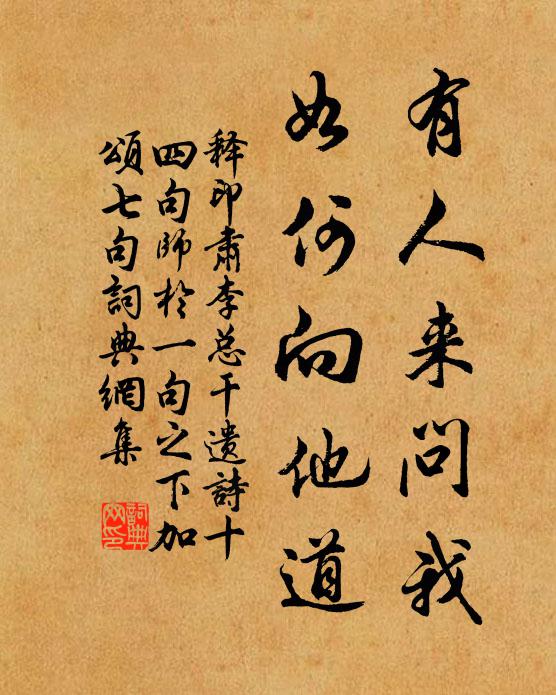 有人来問我
如何向他道
释印肃李总干遗詩十
四句師於一句之下加
頌七句詞典網集
詞典
网印